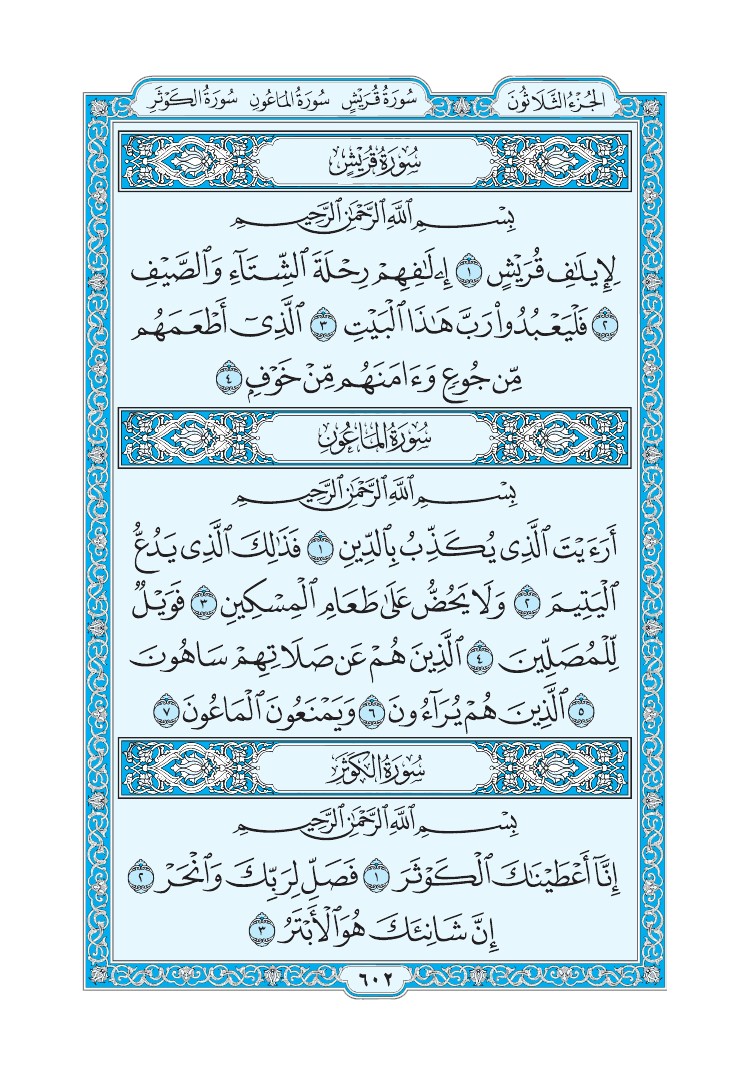 الجُزْءُ الثَّلَاثُونَ
سُورَةُ قُرَيْشٍ سُورَةُ المَاعُونِ سُورَةُ الكَوْثَرِ
سُورَةُ قُرَيْشٍ
بِسْمِ ٱللَّهِ ٱلرَّحْمَٰنِ ٱلرَّحِيمِ
لِإِيلَٰفِ قُرَيْشٍ ١ إِۦلَٰفِهِمْ رِحْلَةَ ٱلشِّتَآءِ وَٱلصَّيْفِ
٢ فَلْيَعْبُدُوا۟ رَبَّ هَٰذَا ٱلْبَيْتِ ٣ ٱلَّذِىٓ أَطْعَمَهُم
مِّن جُوعٍ وَءَامَنَهُم مِّنْ خَوْفٍۭ ٤
سُورَةُ المَاعُونِ
بِسْمِ ٱللَّهِ ٱلرَّحْمَٰنِ ٱلرَّحِيمِ
أَرَءَيْتَ ٱلَّذِى يُكَذِّبُ بِٱلدِّينِ ١ فَذَٰلِكَ ٱلَّذِى يَدُعُّ
ٱلْيَتِيمَ ٢ وَلَا يَحُضُّ عَلَىٰ طَعَامِ ٱلْمِسْكِينِ ٣ فَوَيْلٌ
لِّلْمُصَلِّينَ ٤ ٱلَّذِينَ هُمْ عَن صَلَاتِهِمْ سَاهُونَ
٥ ٱلَّذِينَ هُمْ يُرَآءُونَ ٦ وَيَمْنَعُونَ ٱلْمَاعُونَ ٧
سُورَةُ الكَوْثَرِ
بِسْمِ ٱللَّهِ ٱلرَّحْمَٰنِ ٱلرَّحِيمِ
إِنَّآ أَعْطَيْنَٰكَ ٱلْكَوْثَرَ ١ فَصَلِّ لِرَبِّكَ وَٱنْحَرْ ٢
إِنَّ شَانِئَكَ هُوَ ٱلْأَبْتَرُ ٣
٦٠٢